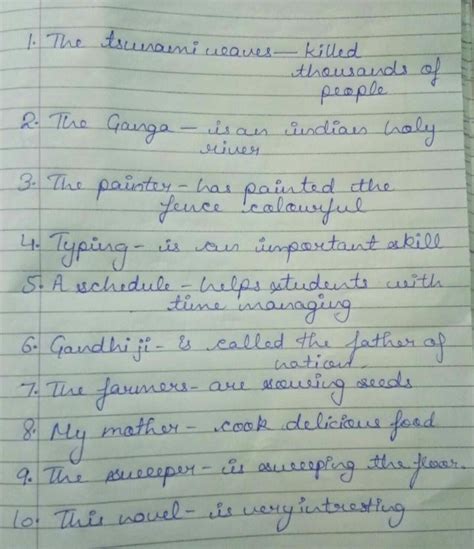 1. The tsunami weaves - killed
thousands of
people
2. The Ganga - is an indian holy
river
3. The painter - has painted the
fence colourful
4. Typing - is an important skill
5. A schedule - helps students with
time managing
6. Gandhiji - is called the father of
nation.
7. The farmers - are sowing seeds
8. My mother - cook delicious food
9. The sweeper - is sweeping the floor.
10. This novel - is very intresting